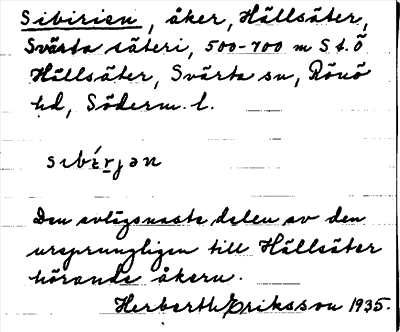 Sibirien, åker, Hällsäter,
Svärta säteri, 500-700 m S t. Ö
Hällsäter, Svärta sn, Rönö
hd, Söderm. l.
sıbı́rjən
Den avlägsnaste delen av den
ursprungligen till Hällsäter
hörande åkern.
Herberth Eriksson 1935.